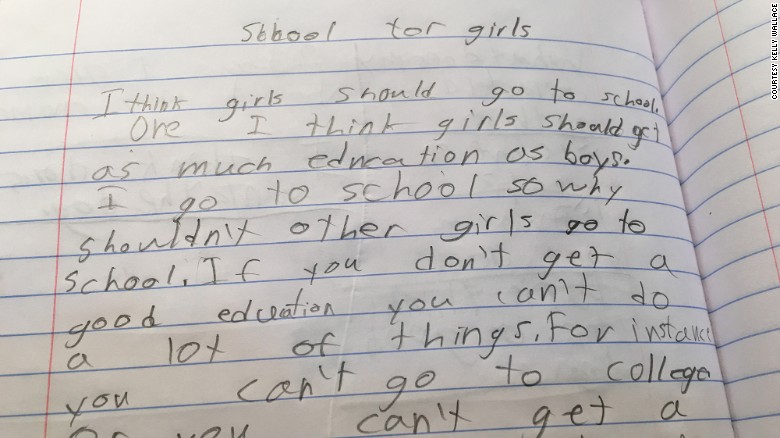 School for girls
I think girls should go to school.
One I think girls should get
as much education as boys.
I go to school so why
shouldn't other girls go to
school. If you don't get a
good education you can't do
a lot of things. For instance
you can't go to college
Or you can't get a
COURTESY KELLY WALLACE